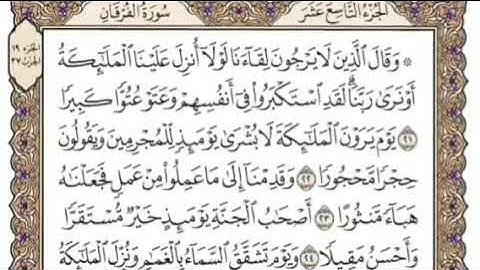 الجزء التاسع عشر
سورة الفرقان
الجزء ١٩
الحزب ٣٧
۞ وَقَالَ ٱلَّذِينَ لَا يَرْجُونَ لِقَآءَنَا لَوْلَآ أُنزِلَ عَلَيْنَا ٱلْمَلَٰٓئِكَةُ
أَوْ نَرَىٰ رَبَّنَا ۗ لَقَدِ ٱسْتَكْبَرُوا۟ فِىٓ أَنفُسِهِمْ وَعَتَوْ عُتُوًّا كَبِيرًا
٢١ يَوْمَ يَرَوْنَ ٱلْمَلَٰٓئِكَةَ لَا بُشْرَىٰ يَوْمَئِذٍ لِّلْمُجْرِمِينَ وَيَقُولُونَ
حِجْرًا مَّحْجُورًا ٢٢ وَقَدِمْنَآ إِلَىٰ مَا عَمِلُوا۟ مِنْ عَمَلٍ فَجَعَلْنَٰهُ
هَبَآءً مَّنثُورًا ٢٣ أَصْحَٰبُ ٱلْجَنَّةِ يَوْمَئِذٍ خَيْرٌ مُّسْتَقَرًّا
وَأَحْسَنُ مَقِيلًا ٢٤ وَيَوْمَ تَشَقَّقُ ٱلسَّمَآءُ بِٱلْغَمَٰمِ وَنُزِّلَ ٱلْمَلَٰٓئِكَةُ